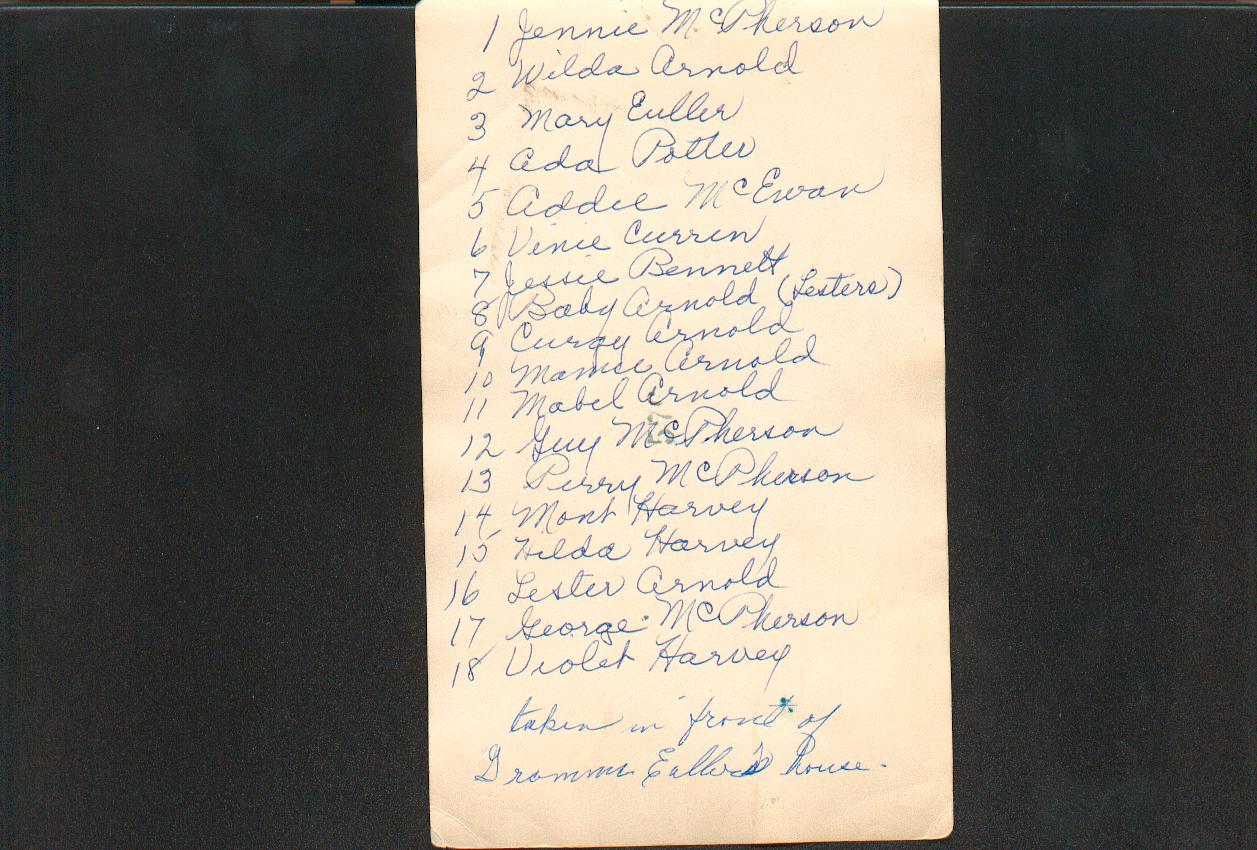 1 Jennie McPherson
2 Wilda Arnold
3 Mary Euller
4 Ada Potter
5 Addie McEwan
6 Vinie Curren
7 Jessie Bennett
8 Baby Arnold (Lesters)
9 Curgy Arnold
10 Mamie Arnold
11 Mabel Arnold
12 Guy McPherson
13 Perry McPherson
14 Mont Harvey
15 Hilda Harvey
16 Lester Arnold
17 George McPherson
18 Violet Harvey
taken in front of
house.